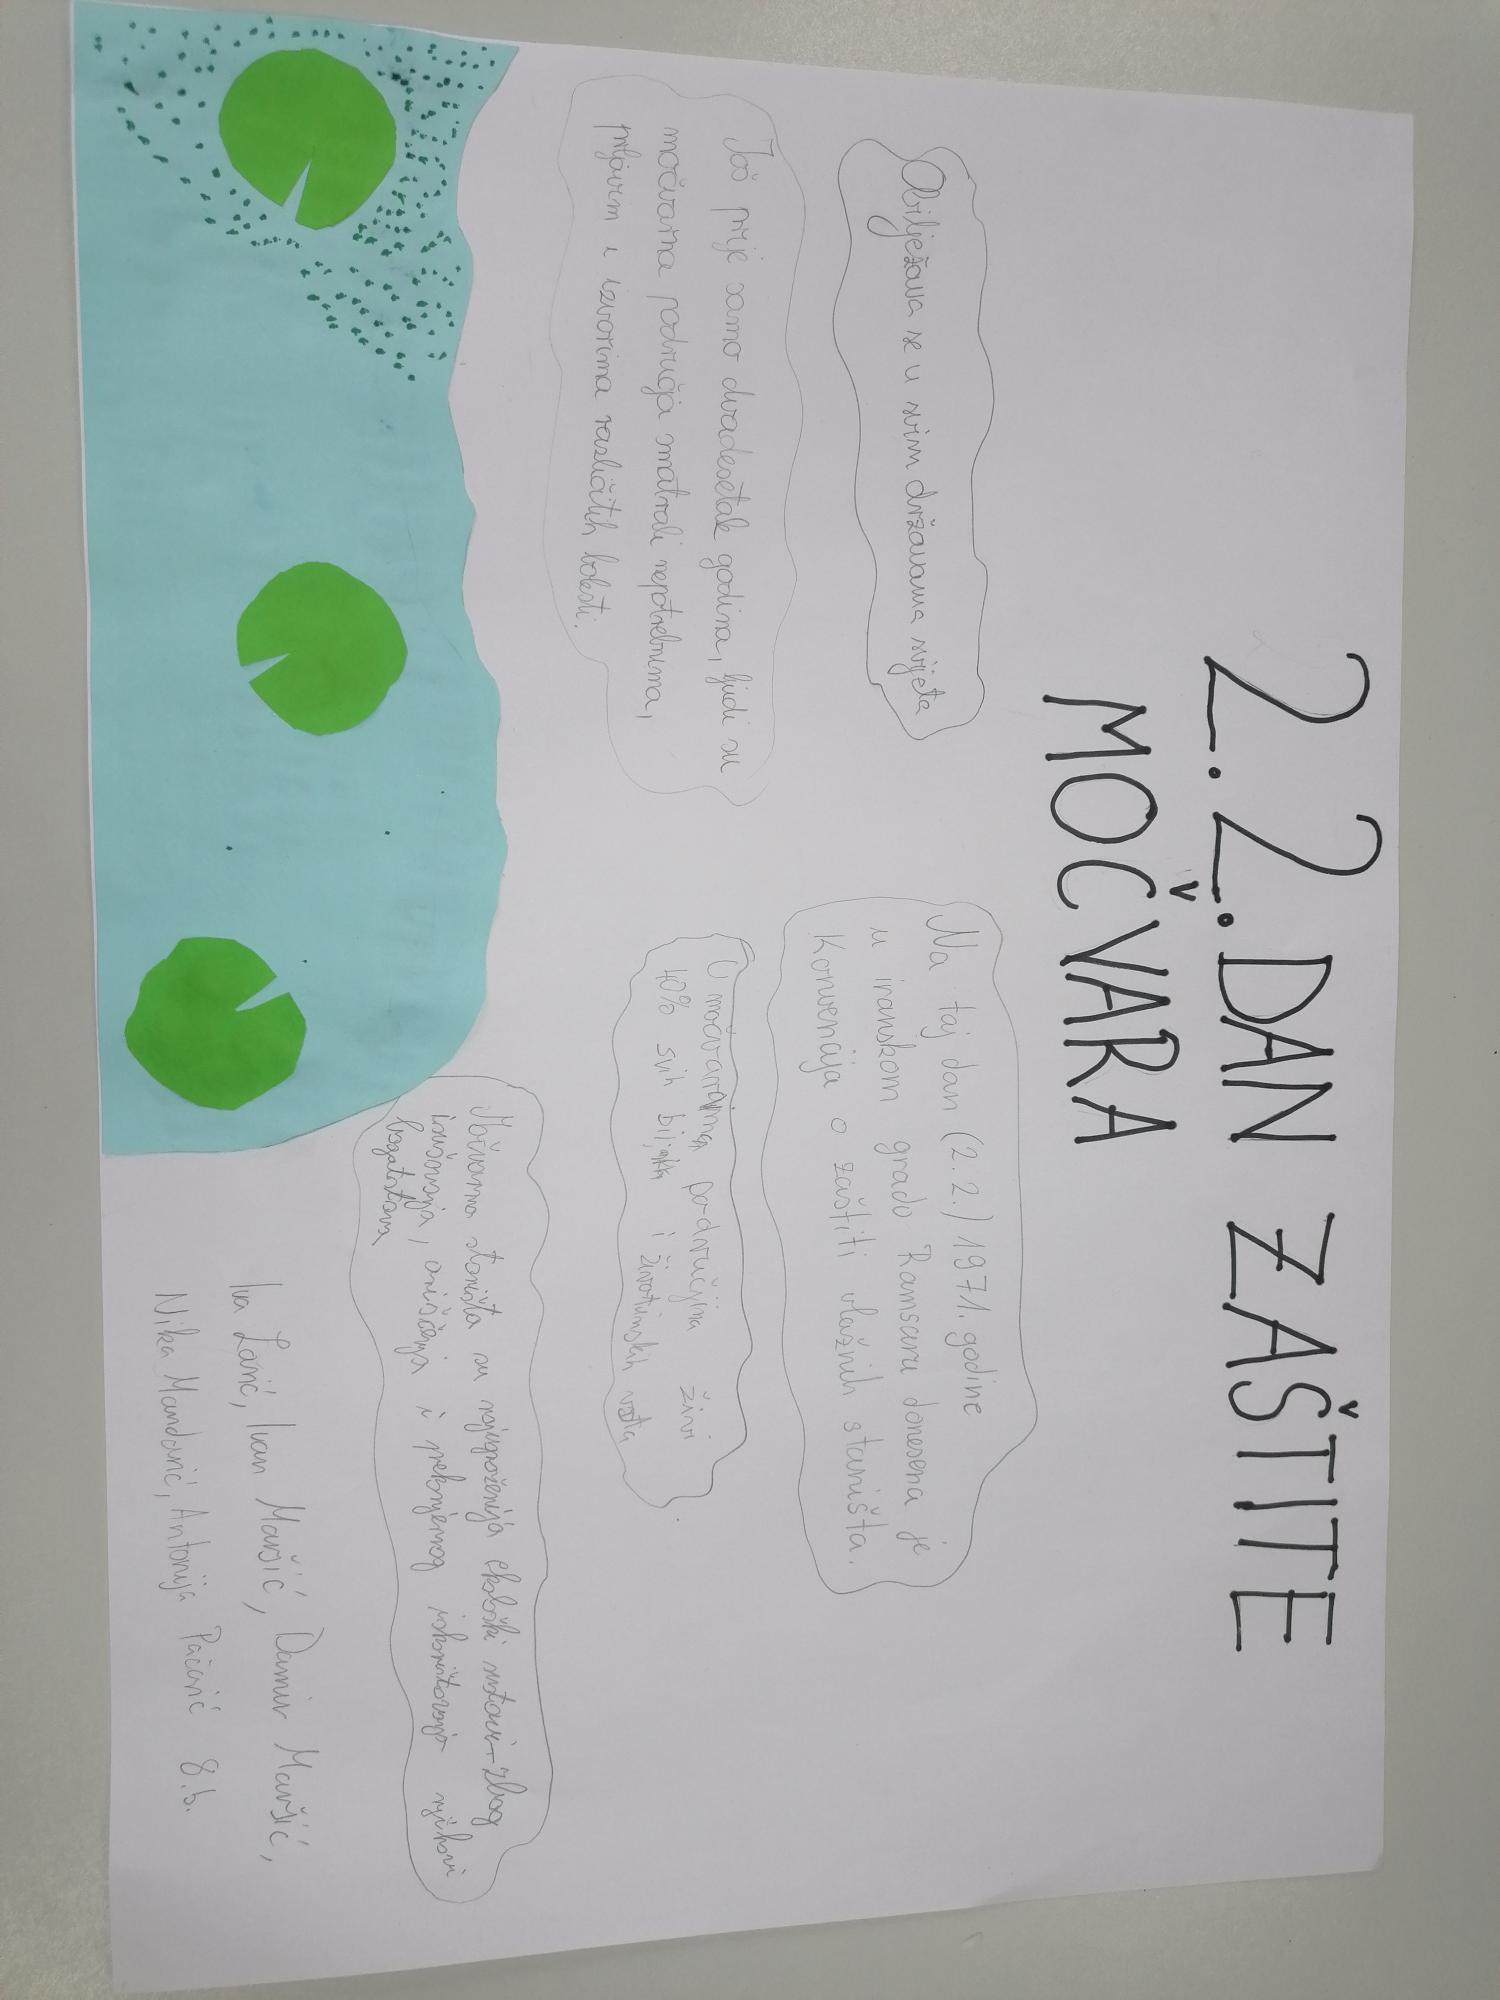 2.2. DAN ZAŠTITE
MOČVARA
Obilježava se u svim državama svijeta
Još prije samo dvadesetak godina, ljudi su
močvarna područja smatrali nepotrebnima,
prljavim i izvorima različitih bolesti.
Na taj dan (2.2.) 1971. godine
u iranskom gradu Ramsaru donesena je
Konvencija o zaštiti vlažnih staništa.
U močvarnima područjima živi
40% svih biljnih i životinjskih vrsta
Močvarna staništa su najugroženija ekološki sustavi - zbog
isušivanja, onišćenja i prekomjernog iskorištavanja njihovi
bogatstava
Iva Larić, Ivan Maršić, Damir Maršić,
Nika Mandarić, Antonija Pačarić 8.b.